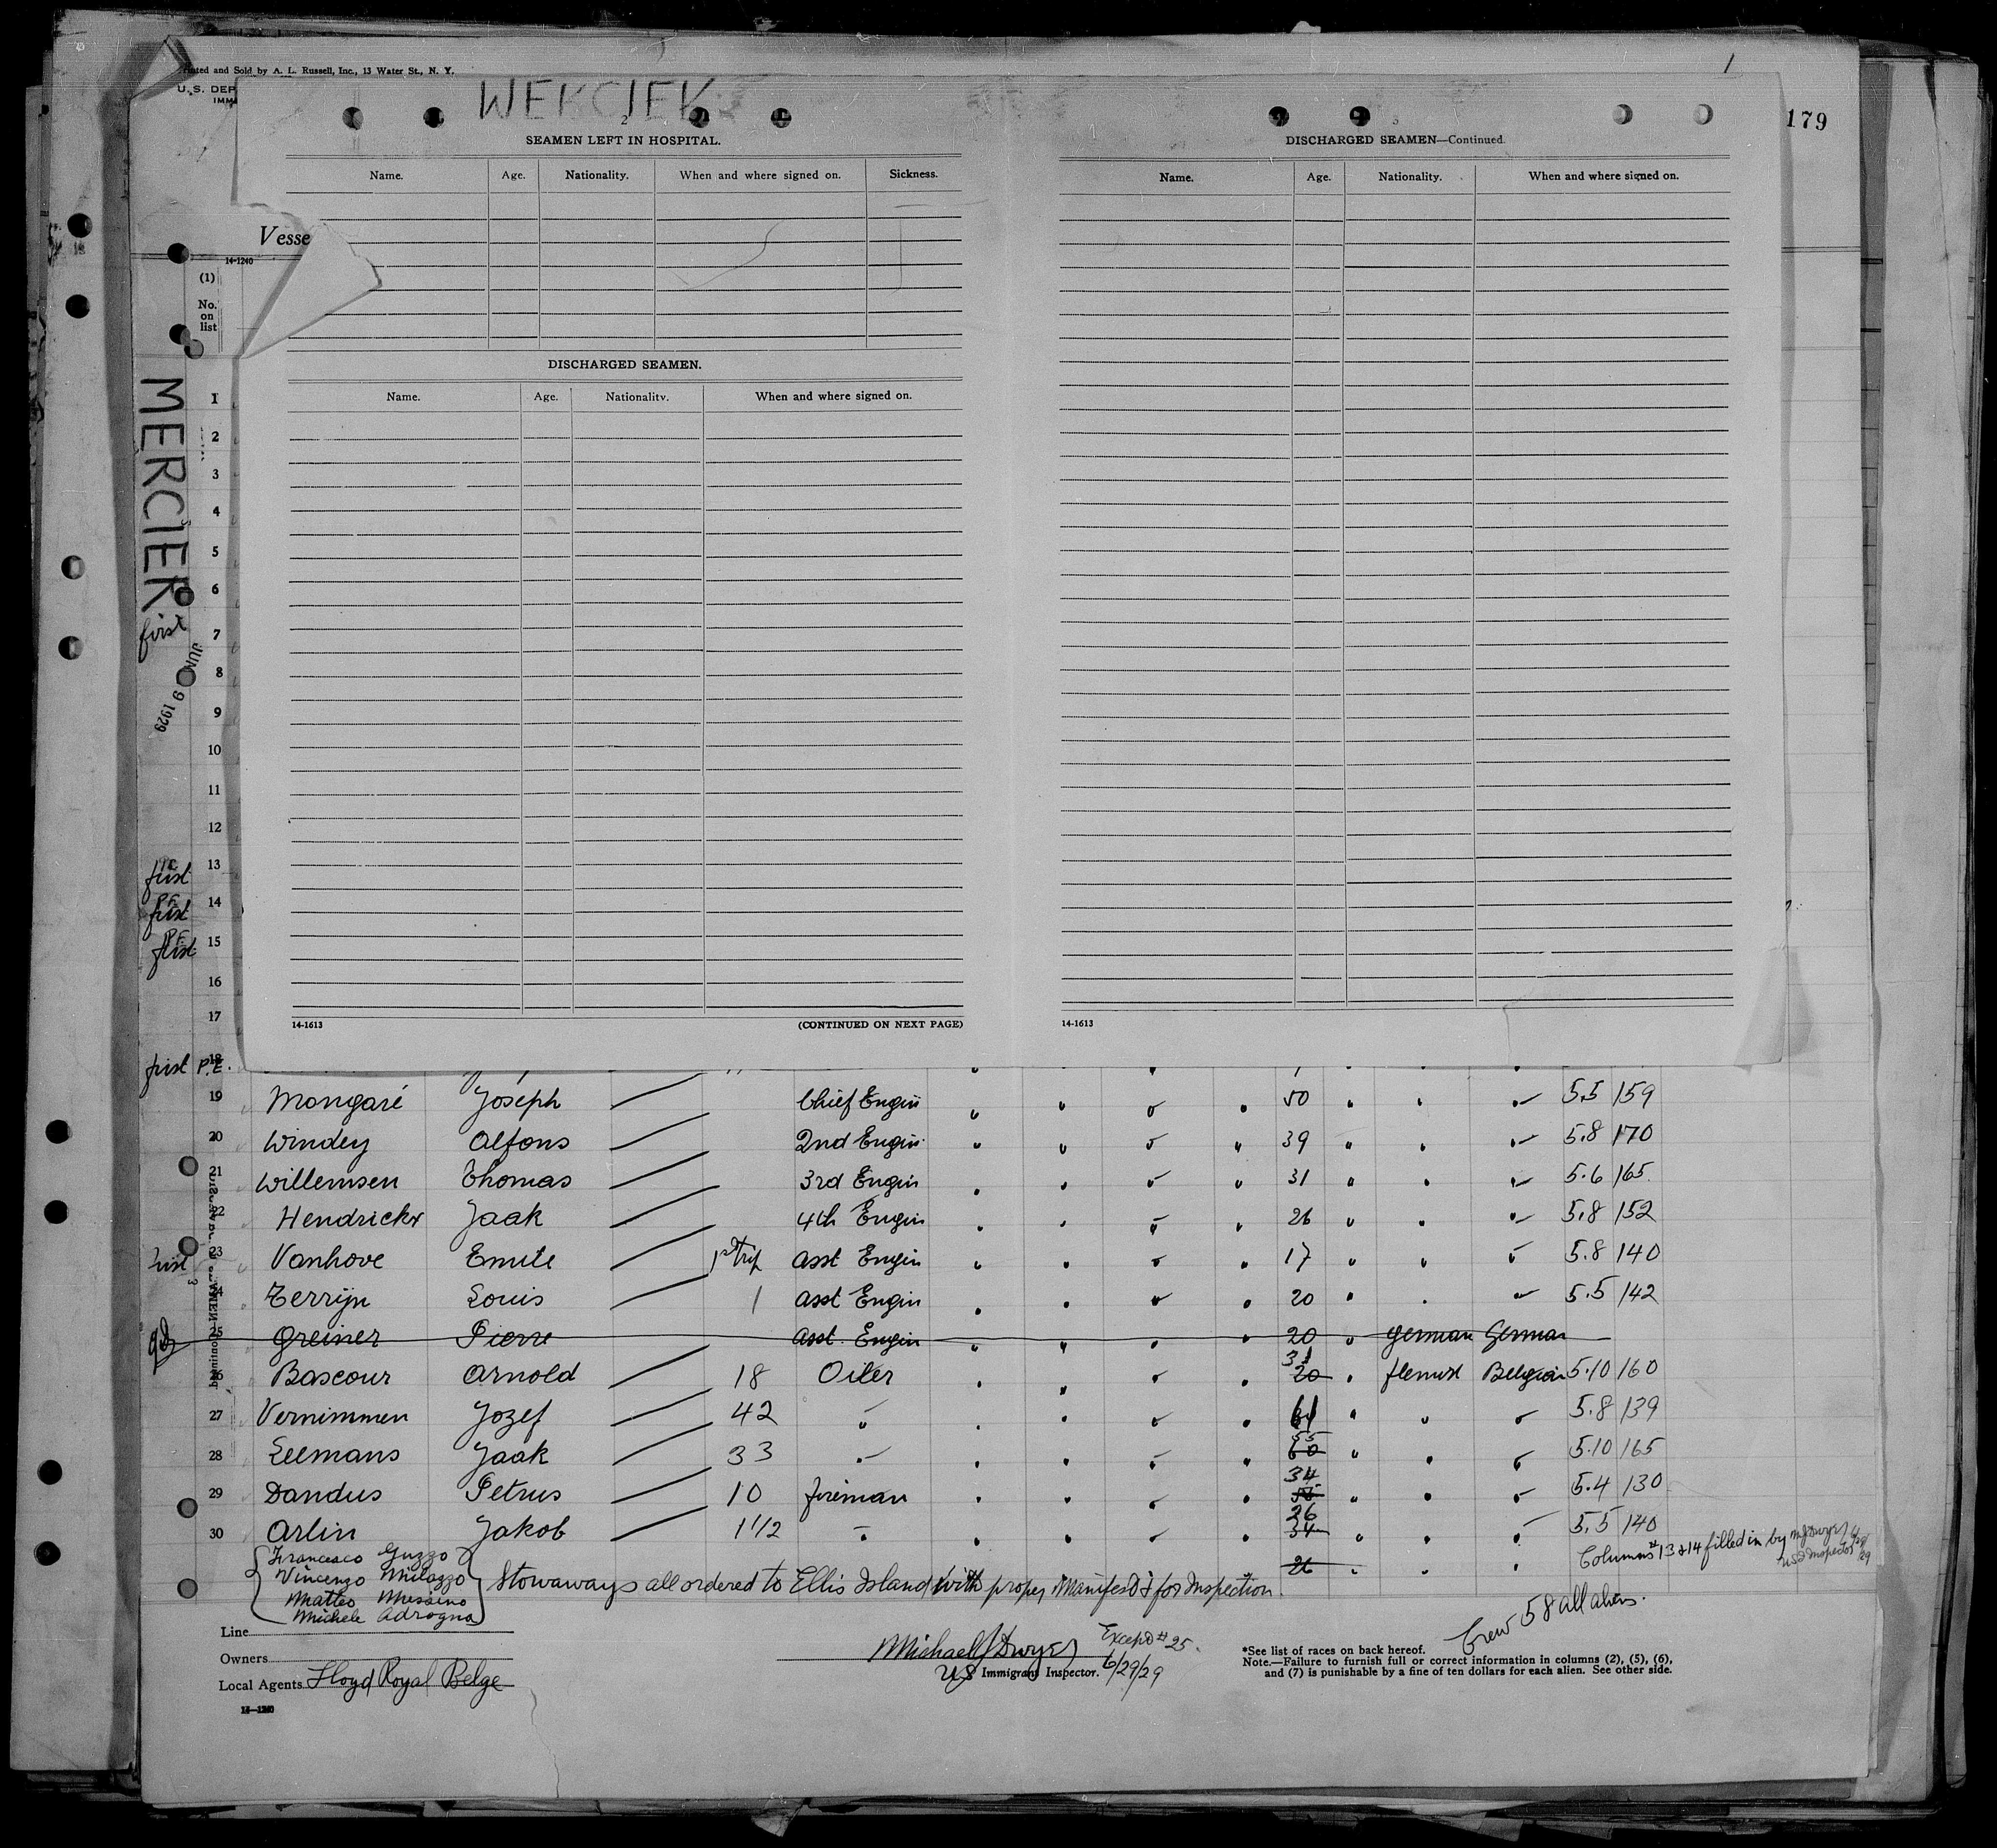 1
Printed and Sold by A. L. Russell, Inc., 13 Water St., N. Y.
U. S. DEP
IMMI
179
2
SEAMEN LEFT IN HOSPITAL.
Name. Age. Nationality. When and where signed on. Sickness.
Vesse
14-1240
(1)
No. on list
DISCHARGED SEAMEN.
Name. Age. Nationality. When and where signed on.
14-1613 (CONTINUED ON NEXT PAGE)
3
DISCHARGED SEAMEN—Continued.
Name. Age. Nationality. When and where signed on.
14-1613
MERCIER
first
JUN 9 1929
1
2
3
4
5
6
7
8
9
10
11
12
first 13
P.E. first 14
P.E. first 15
16
17
first P.E. 18
19 Mongaré Joseph Chief Engin 50 5.5 159
20 Windey Alfons 2nd Engin 39 5.8 170
21 Willemsen Thomas 3rd Engin 31 5.6 165
22 Hendrickx Jaak 4th Engin 26 5.8 152
first 23 Vanhove Emile 1st trip asst Engin 17 5.8 140
24 Terrijn Louis 1 asst Engin 20 5.5 142
25 Greiner Pierre asst. Engin 20 german German
26 Bascour Arnold 18 Oiler 31 20 flemish Belgian 5.10 160
27 Vernimmen Jozef 42 " 61 5.8 139
28 Eelmans Jaak 33 " 55 60 5.10 165
29 Dandus Petrus 10 fireman 34 5.4 130
30 Arlin Jakob 1 1/2 " 26 34 5.5 140
26
Columns # 13 & 14 filled in by MJ Dwyer US Inspector 6/29/29
Francesco Guzzo
Vincenzo Milazzo
Matteo Messino
Michele Adragna
Stowaways all ordered to Ellis Island with proper Manifest & for Inspection.
Crew 58 all aliens.
Line
Owners
Local Agents Lloyd Royal Belge
14-1240
Michael J Dwyer Except # 25.
US Immigrant Inspector. 6/29/29
*See list of races on back hereof.
Note.—Failure to furnish full or correct information in columns (2), (5), (6),
and (7) is punishable by a fine of ten dollars for each alien. See other side.